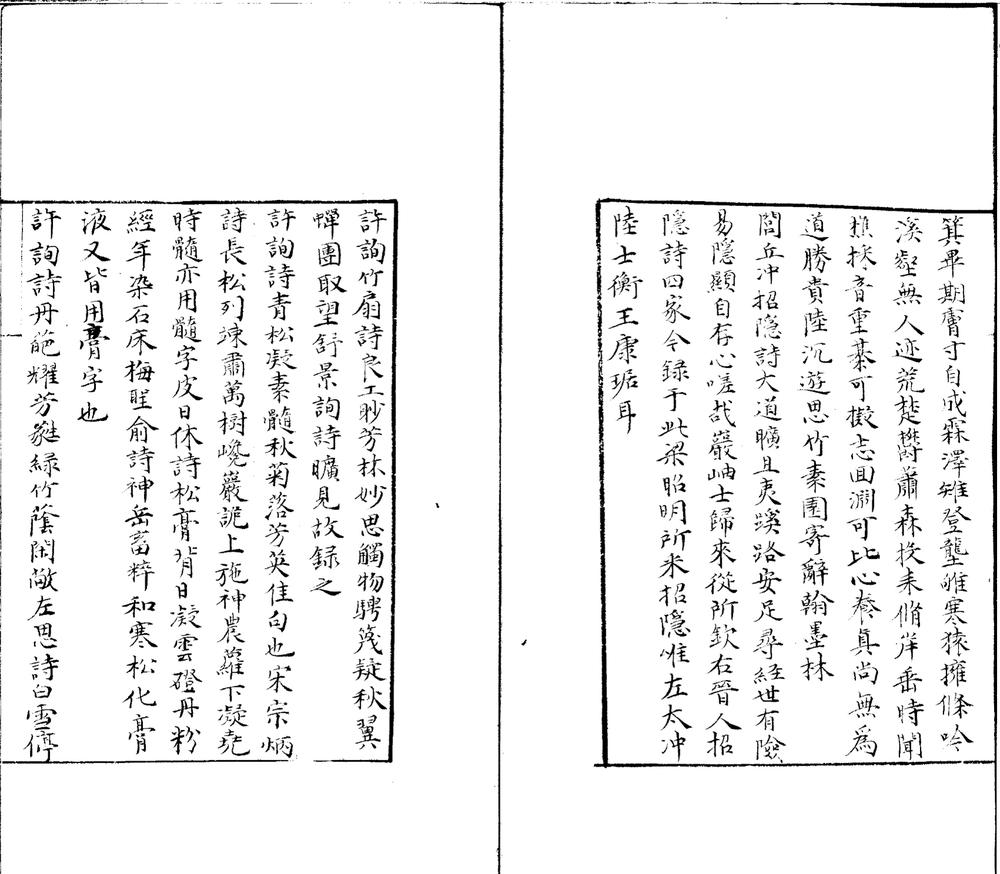 箕畢期膚寸自成霖澤雉登壟雊寒猿擁條吟
溪壑無人迹荒楚欝蕭森投耒脩岸垂時聞
樵採音重基可擬志囬淵可比心養真尚無為
道勝貴陸沉遊思竹素園寄辭翰墨林
閭丘冲招隐詩大道曠且夷蹊路安足尋経世有險
易隱顯自存心嗟㢤巖岫士歸來從所欽右晉人招
隱詩四家今録于此梁昭明所采招隱惟左太冲
陸士衡王康琚耳
許詢竹扇詩良工眇芳林妙思觸物騁篾疑秋翼
蟬團取望舒景詢詩曠見故録之
許詢詩青松凝素髓秋菊落芳英佳句也宋宗炳
詩長松列竦肅萬樹巉巖詭上施神農蘿下凝堯
時髓亦用髓字皮日休詩松膏背日凝雲磴丹粉
經年染石床梅聖俞詩神岳畜粹和寒松化膏
液又皆用膏字也
許詢詩丹葩耀芳蕤緑竹蔭閑敞左思詩白雪停